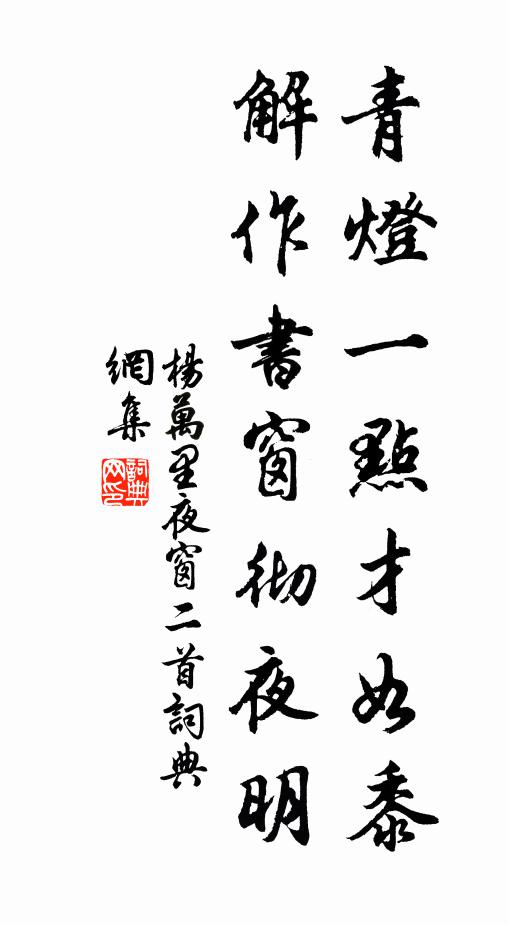 青燈一點才如黍
解作書窗彻夜明
楊萬里夜窗二首詞典
網集
詞典
网印